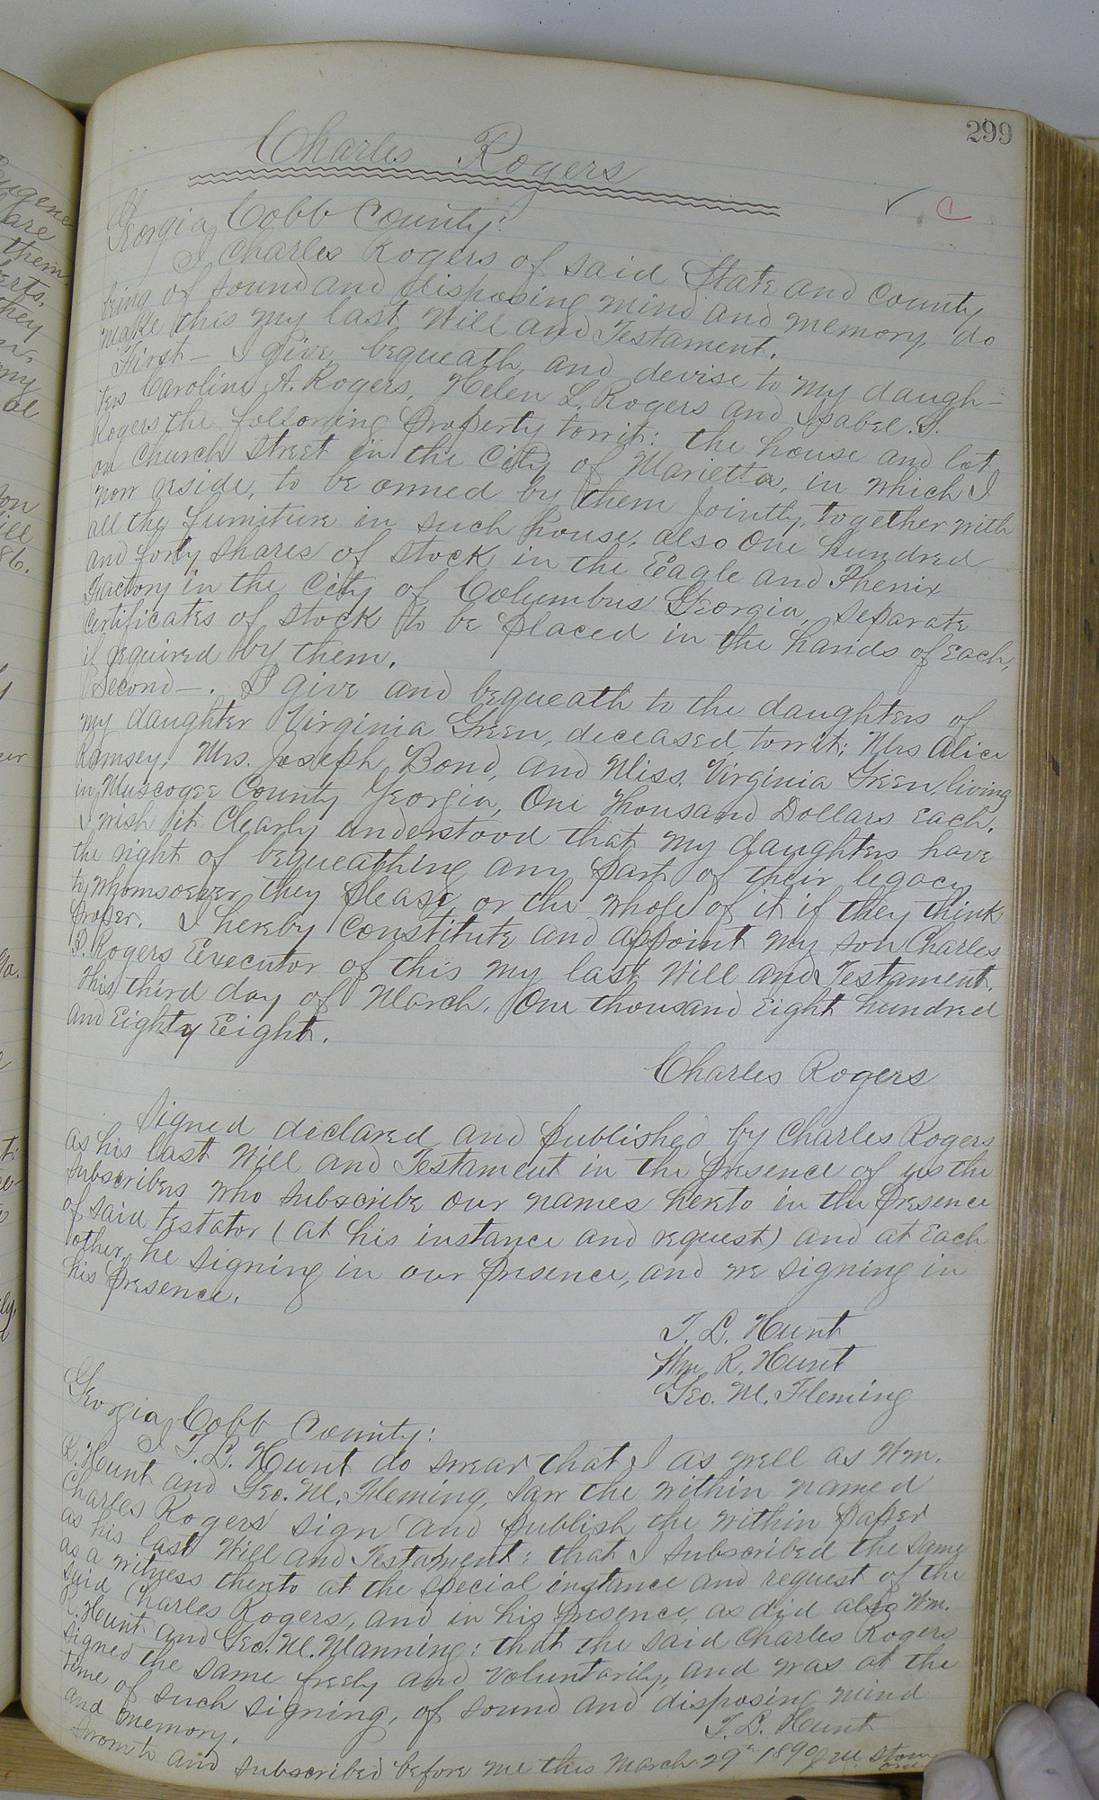 299
Charles Rogers
✓ C
Georgia, Cobb County:
I Charles Rogers of said State and County
being of sound and disposing mind and memory, do
make this my last Will and Testament.
First - I give, bequeath, and devise to my daugh-
ters Caroline A. Rogers, Helen L. Rogers and Isabel. S.
Rogers the following Property towit: the house and lot
on Church Street in the City of Marietta, in which I
now reside, to be owned by them jointly, together with
all the furniture in such house, also One hundred
and forty shares of stock in the Eagle and Phenix
Factory in the City of Columbus Georgia, separate
Certificates of stock to be placed in the hands of Each,
if required by them.
Second -. I give and bequeath to the daughters of
my daughter Virginia Green, deceased, towit: Mrs Alice
Ramsey, Mrs. Joseph Bond, and Miss. Virginia Green, living
in Muscogee County Georgia, One Thousand Dollars Each.
I wish it Clearly understood that my daughters have
the right of bequeathing any part of their legacy
to whomsoever they please, or the whole of it if they think
proper. I hereby Constitute and appoint my son Charles
P. Rogers Executor of this my last Will and Testament.
This third day of March. One thousand Eight hundred
and Eighty Eight.
Charles Rogers
Signed declared and published by Charles Rogers
as his last Will and Testament in the presence of us the
subscribers who subscribe our names hereto in the presence
of said testator (at his instance and request) and at Each
other, he signing in our presence, and we signing in
his presence.
T. L. Hunt
Wm. R. Hunt
Geo. M. Fleming
Georgia, Cobb County:
I T. L. Hunt do swear that I as well as Wm.
R. Hunt and Geo. M. Fleming, saw the within named
Charles Rogers sign and publish the within paper
as his last Will and Testament: that I subscribed the same
as a witness thereto at the special instance and request of the
said Charles Rogers, and in his presence, as did also Wm.
R. Hunt and Geo. M. Manning: that the said Charles Rogers
signed the same freely and voluntarily, and was at the
time of such signing, of sound and disposing mind
and memory.
T. L. Hunt
Sworn to and subscribed before me this March 29th 1890
Eugene
are
them
erts.
they
my
al
ill
86.
Ga.